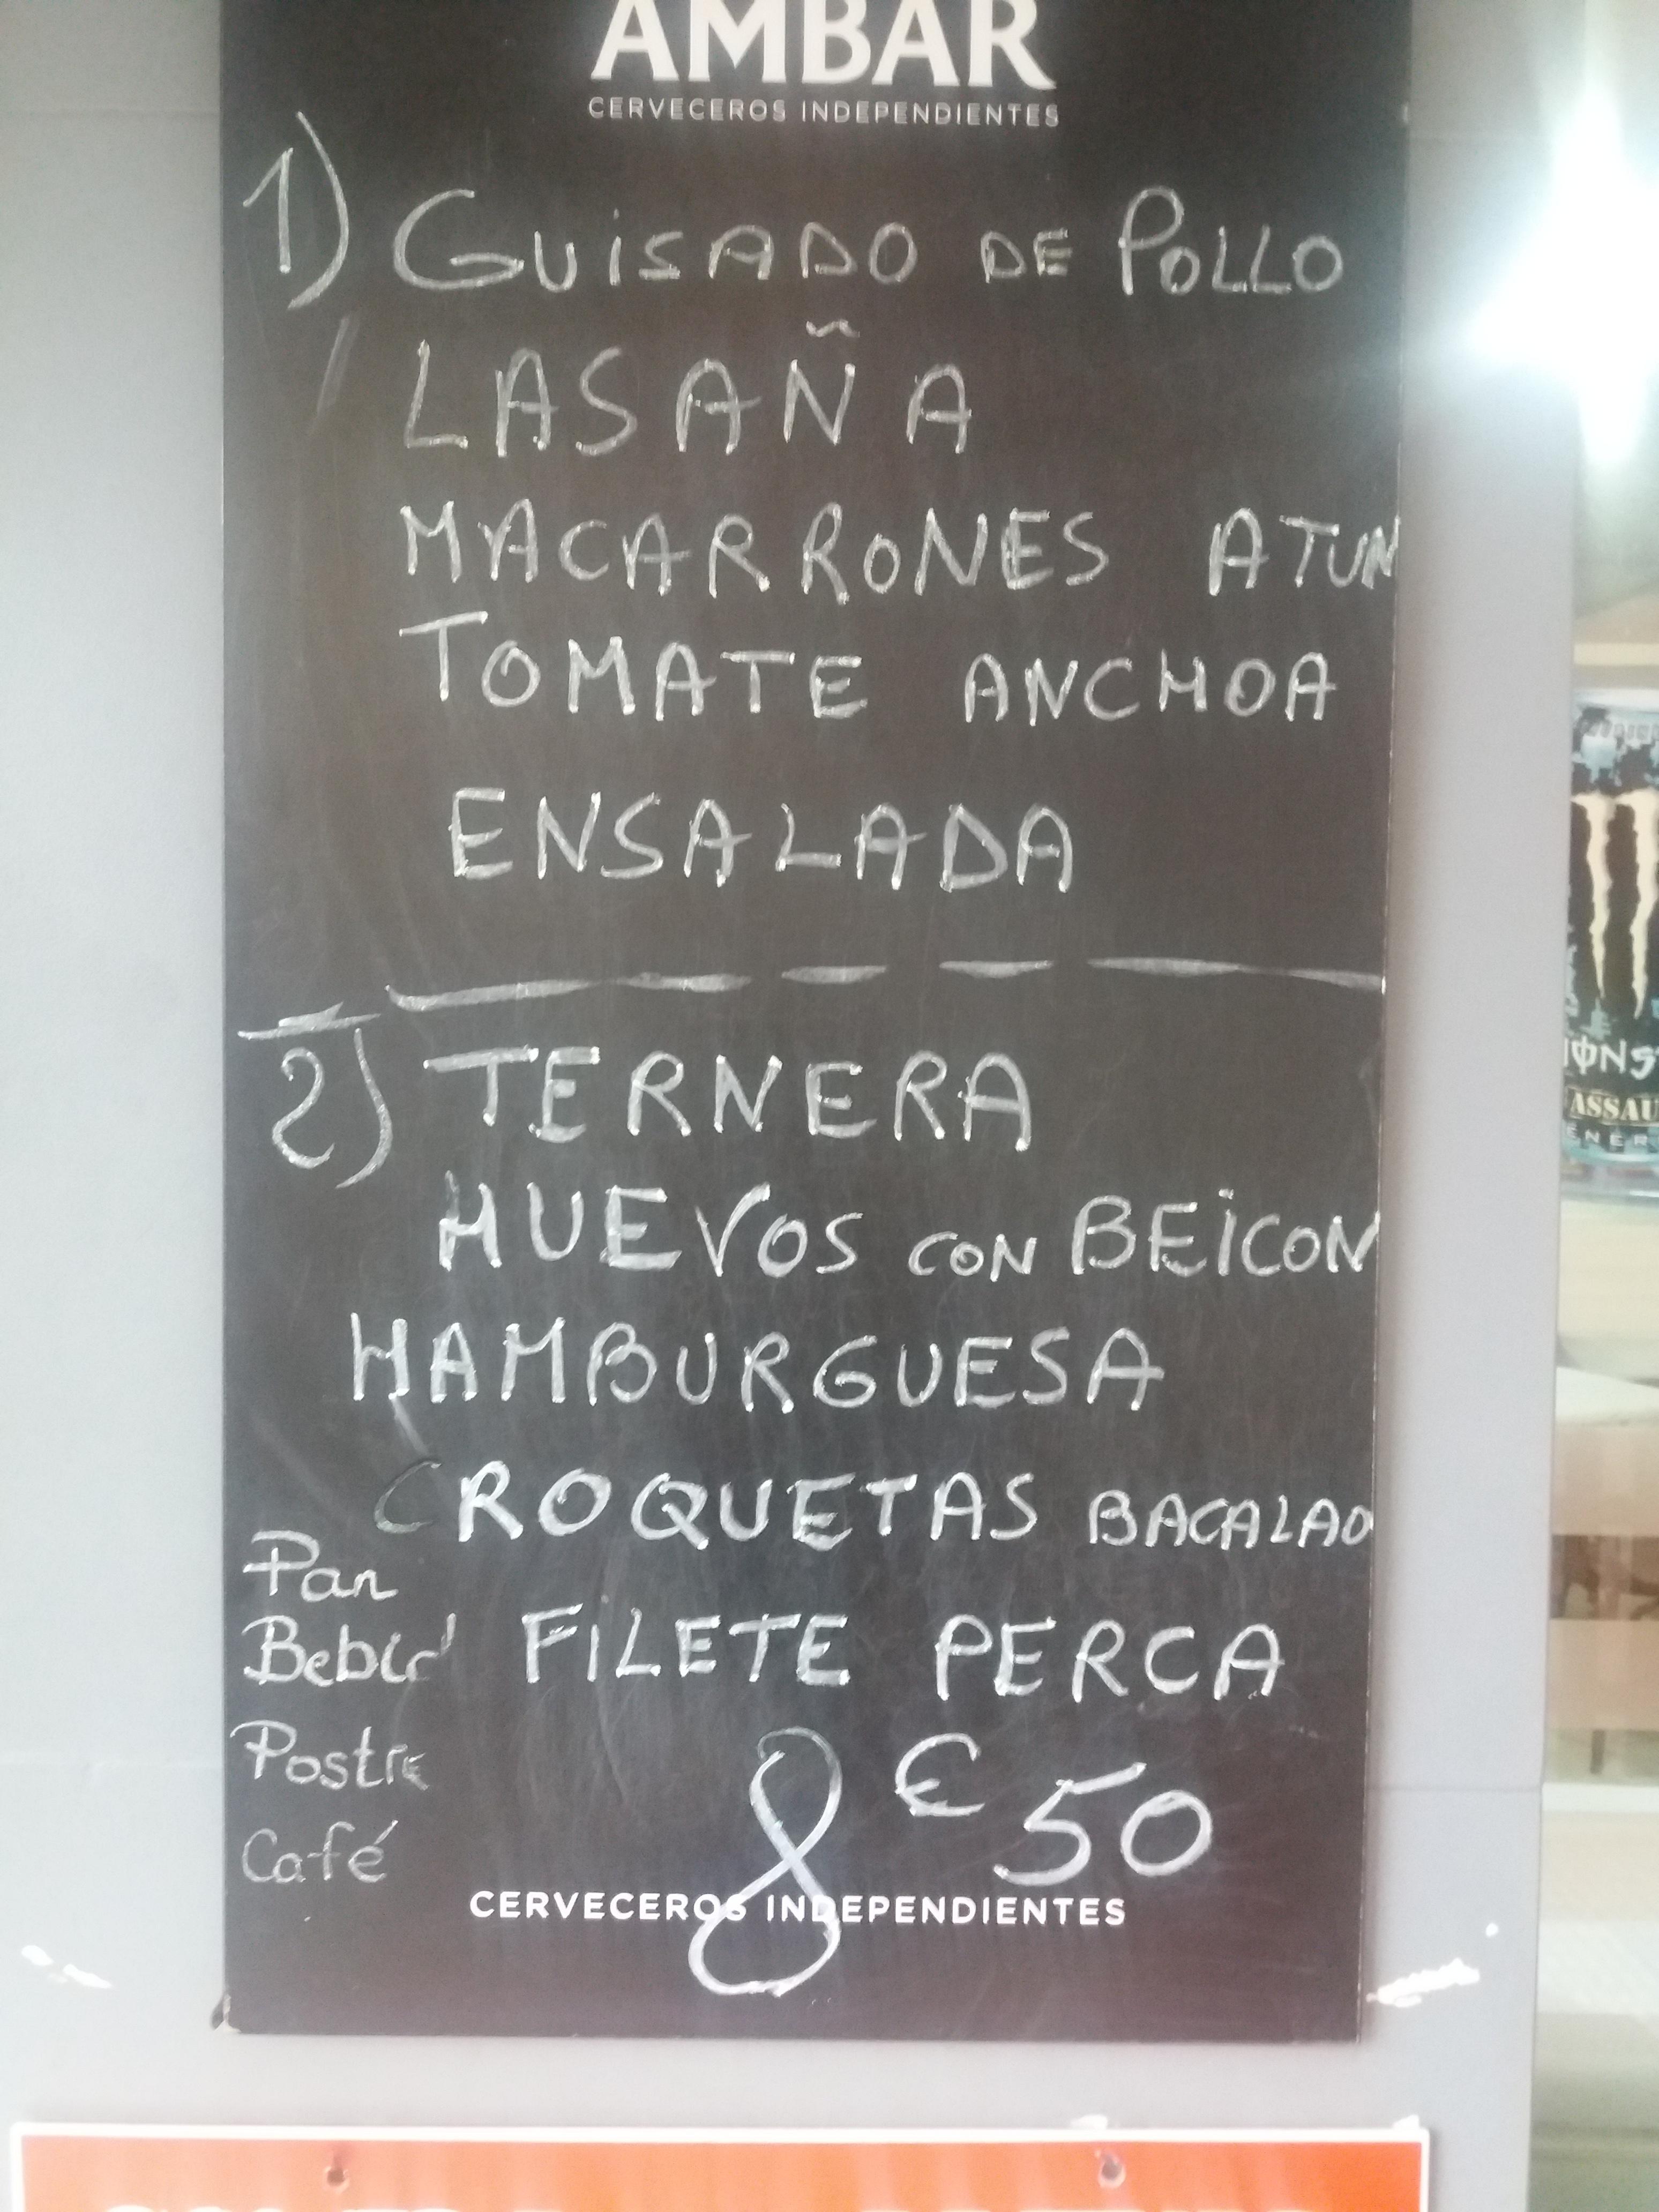 AMBAR
CERVECEROS INDEPENDIENTES
1) GUISADO DE POLLO
LASAÑA
MACARRONES ATUN
TOMATE ANCHOA
ENSALADA
2) TERNERA
HUEVOS CON BEICON
HAMBURGUESA
CROQUETAS BACALAO
Pan
FILETE PERCA
Postre
Café
8€50
CERVECEROS INDEPENDIENTES
ASSAU
ENER